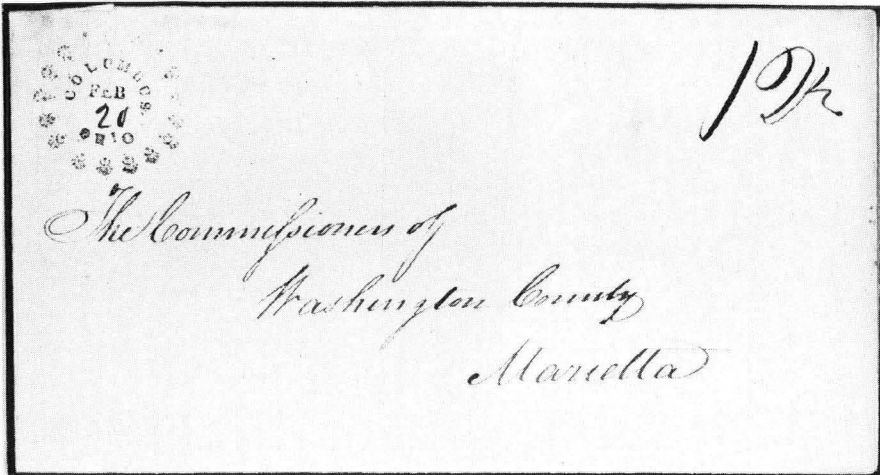 COLUMBUS
FEB
20
OHIO
The Commissioners of
Washington County
Marietta